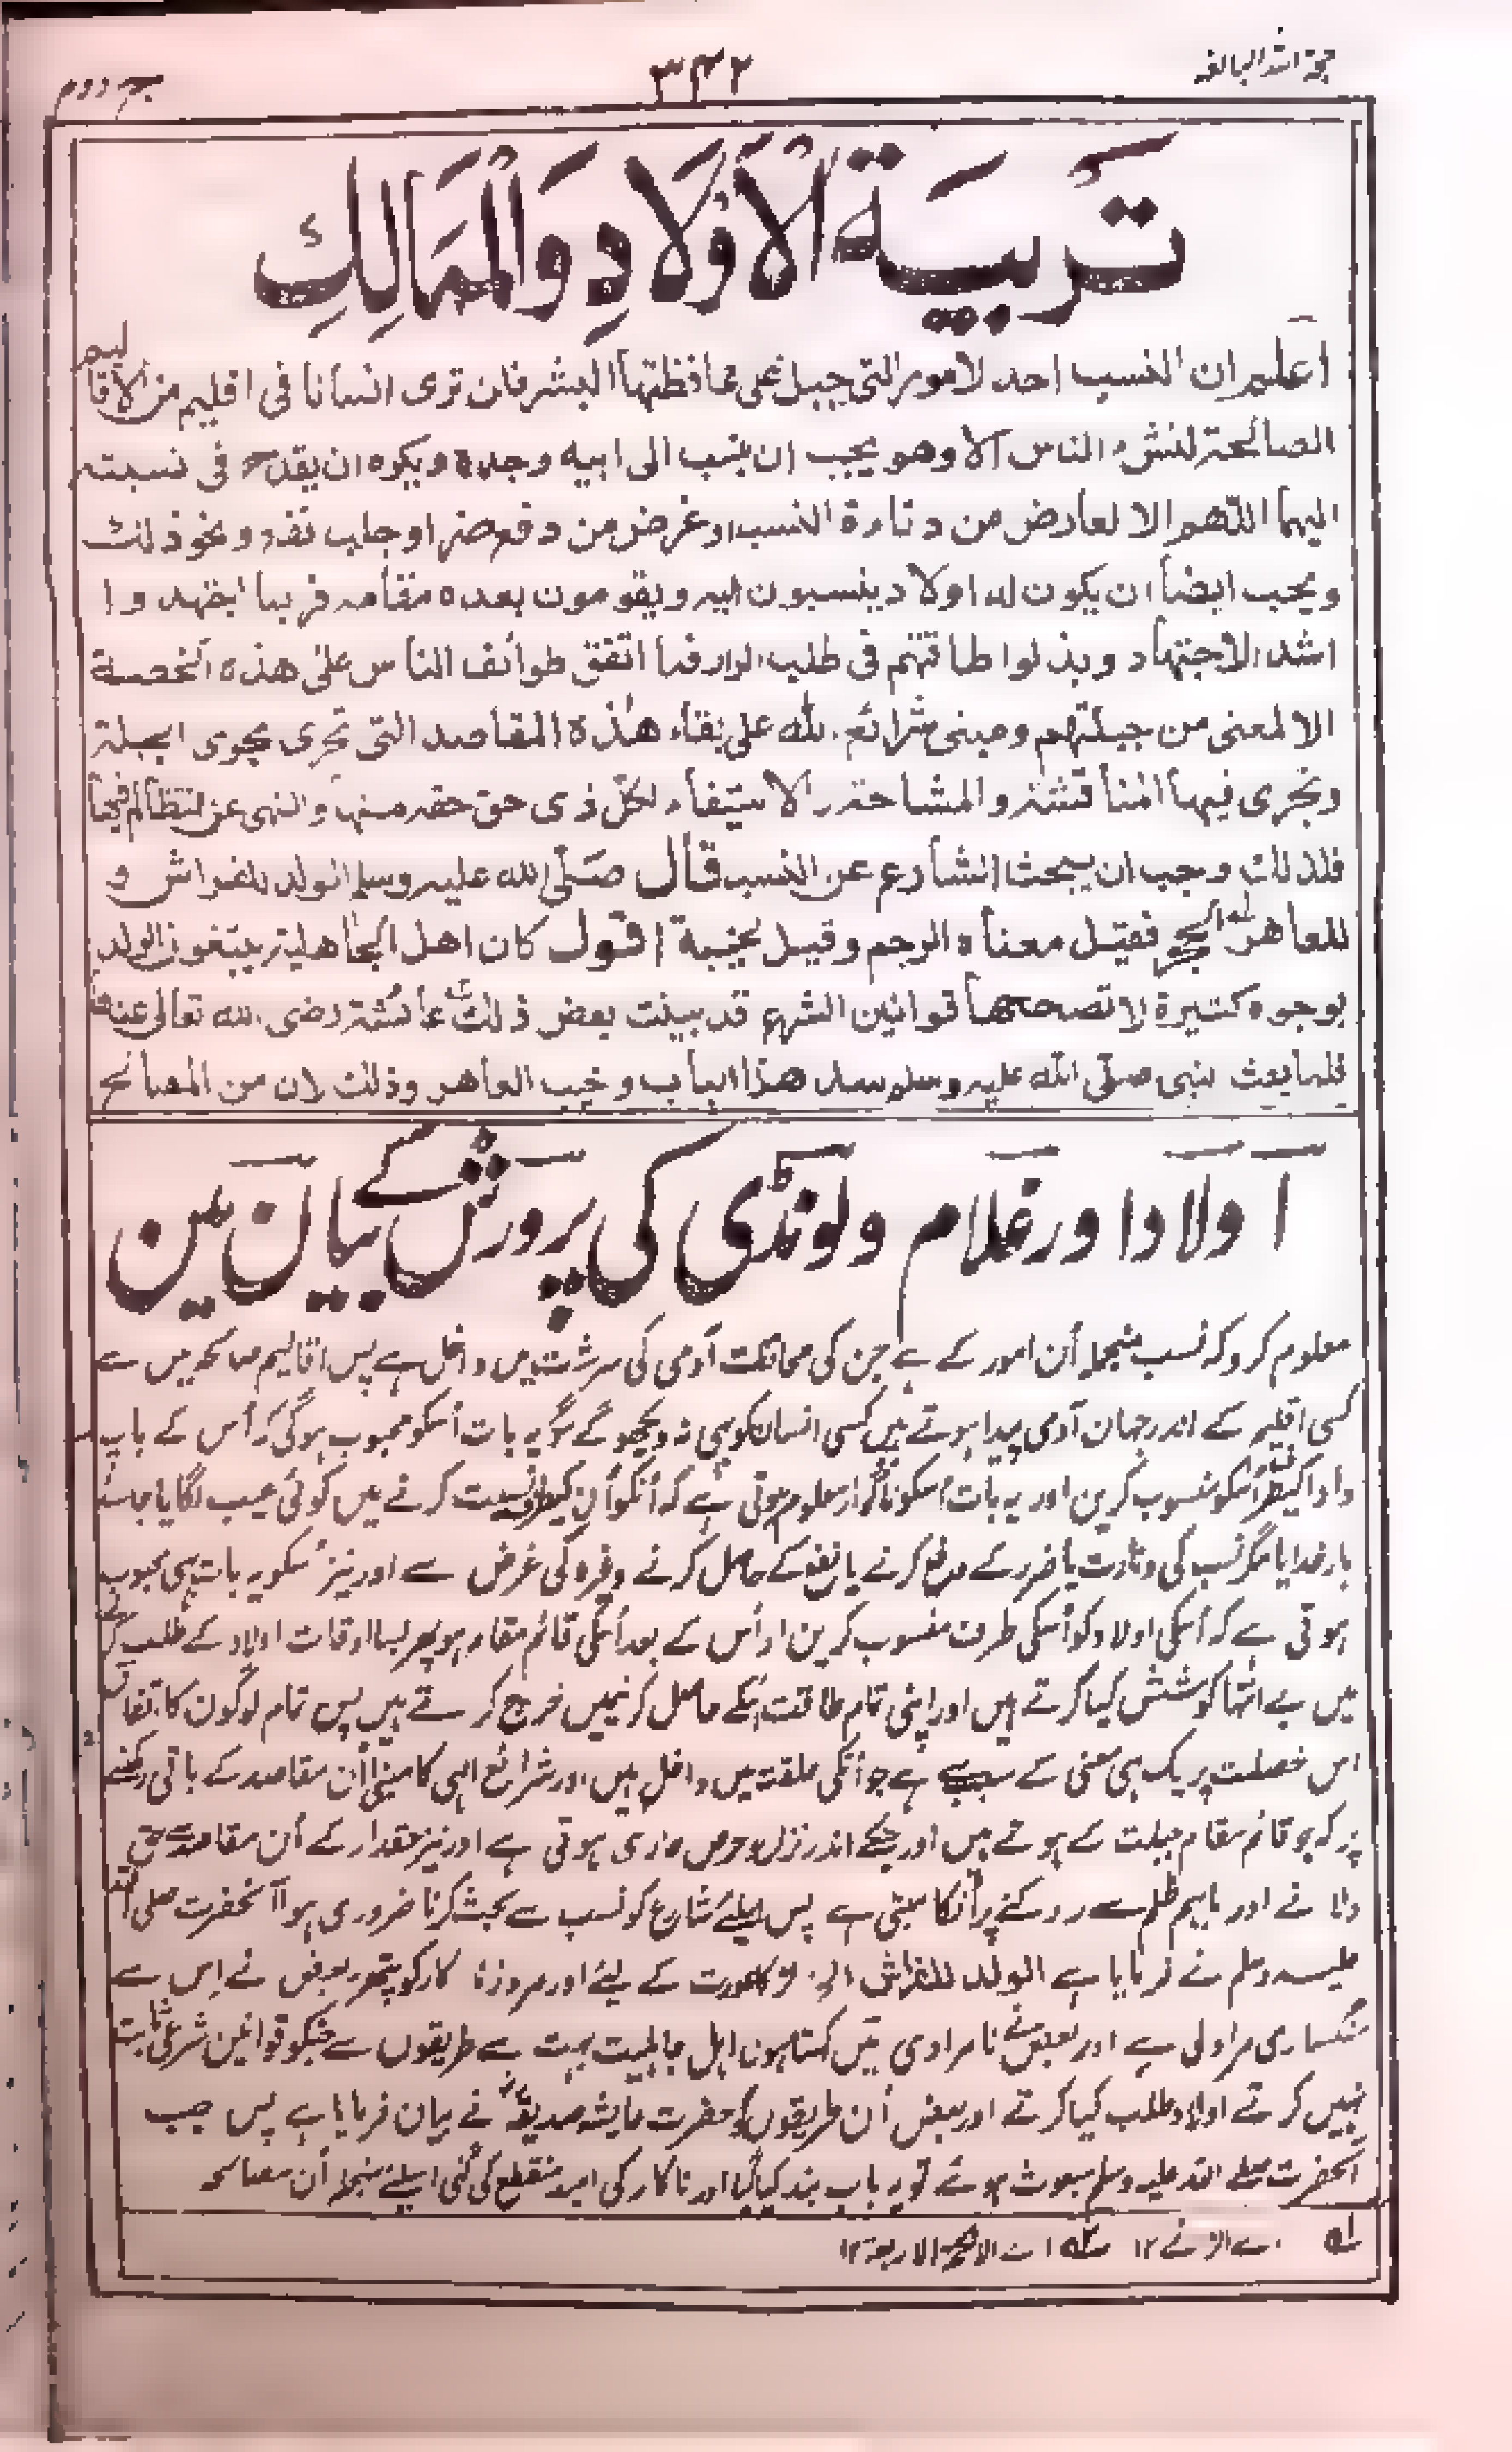 حجۃ اللہ البالغہ
۳۴۲
جلد دوم
تَربِيَة الْأَوْلَادِ وَالْمَمَالِكِ
اعلم ان النسب احد الامور التى جبل على محافظتها البشر فلن ترى انسانا فى اقليم من الاقاليم
الصالحة لنشء الناس الا وهو يحب ان ينسب الى ابيه وجده ويكره ان يقدح فى نسبته
اليهما اللّٰهم الا لعارض من دناءة النسب او غرض من دفع ضر او جلب نفع ونحو ذلك
ويحب ايضا ان يكون له اولاد ينسبون اليه ويقومون بعده مقامه فربما اجتهدوا
اشد الاجتهاد وبذلوا طاقتهم فى طلب الولد فما اتفق طوائف الناس على هذه الخصلة
الا لمعنى من جبلتهم ومبنى شرائع الله على بقاء هذه المقاصد التى تجرى مجرى الجبلة
وتجرى فيها المناقشة والمشاحة والاستيفاء لكل ذى حق حقه منها والنهى عن التظالم فيها
فلذلك وجب ان يبحث الشارع عن النسب قال صَلّى الله عليه وسلم الولد للفراش و
للعاهر الحجر فقيل معناه الرجم وقيل الخيبة اقول كان اهل الجاهلية يبتغون الولد
بوجوه كثيرة لا تصححها قوانين الشرع قد بينت بعض ذلك عائشة رضى الله تعالى عنها
فلما بعث النبى صلّى الله عليه وسلم سد هذا الباب وخيب العاهر وذلك لان من المصالح
اولاد اور غلام ولونڈی کی پرورش کے بیان مین
معلوم کرو کہ نسب منجملہ اُن امور کے ہے جن کی محافظت آدمی کی سرشت میں داخل ہے پس اقالیم صالحہ میں سے
کسی اقلیم کے اندر جہان آدمی پیدا ہوتے ہیں کسی انسان کو ہی نہ دیکھو گے مگر یہ بات اُسکو محبوب ہوگی کہ اُس کے باپ
دادا کیطرف اُسکو منسوب کرین اور یہ بات اُسکو ناگوار معلوم ہوتی ہے کہ اُنکو اُن کیطرف نسبت کرنے میں کوئی عیب لگایا جائے
بار خدایا مگر نسب کی دنائت یا ضرر کے دفع کرنے یا نفع کے حاصل کرنے وغیرہ کی غرض سے اور نیز اُسکو یہ بات ہی محبوب
ہوتی ہے کہ اُسکی اولاد کو اُسکی طرف منسوب کرین اور اُس کے بعد اُسکی قائم مقام ہو پھر بسا اوقات اولاد کے طلب کرنے
میں بے انتہا کوشش کیا کرتے ہیں اور اپنی تمام طاقت اُسکے حاصل کرنیمیں خرچ کرتے ہیں پس تمام لوگون کا اتفاق
اس خصلت پر یک ہی معنی کے سبب سے ہے جو اُنکی خلقت میں داخل ہیں اور شرائع الٰہی کا مبنیٰ اُن مقاصد کے باقی رکھنے
پر کہ جو قائم مقام جبلت کے ہوتے ہیں اور جنکے اندر نزاع و حرص جاری ہوتی ہے اور نیز حقدار کے اُن مقاصد سے حق
دلانے اور باہم ظلم سے روکنے پر اُنکا مبنیٰ ہے پس اسلیئے شارع کو نسب سے بحث کرنا ضروری ہوا آنحضرت صلی اللہ
علیہ وسلم نے فرمایا ہے الولد للفراش الخ عورت کے لیئے اور مرد زنا کار کو پتھر بعض نے اس سے
سنگساری مراد لی ہے اور بعض نے نامرادی میں کہتا ہون اہل جاہلیت بہت سے طریقوں سے جنکو قوانین شرعی ثابت
نہیں کرتے اولاد طلب کیا کرتے اور بعض اُن طریقوں کو حضرت عایشہ صدیقہ نے بیان فرمایا ہے پس جب
آنحضرت صلے اللہ علیہ وسلم مبعوث ہوئے تو یہ باب بند کیا گیا اور زناکار کی امید منقطع کی گئی اسیلے منجملہ اُن مصالح